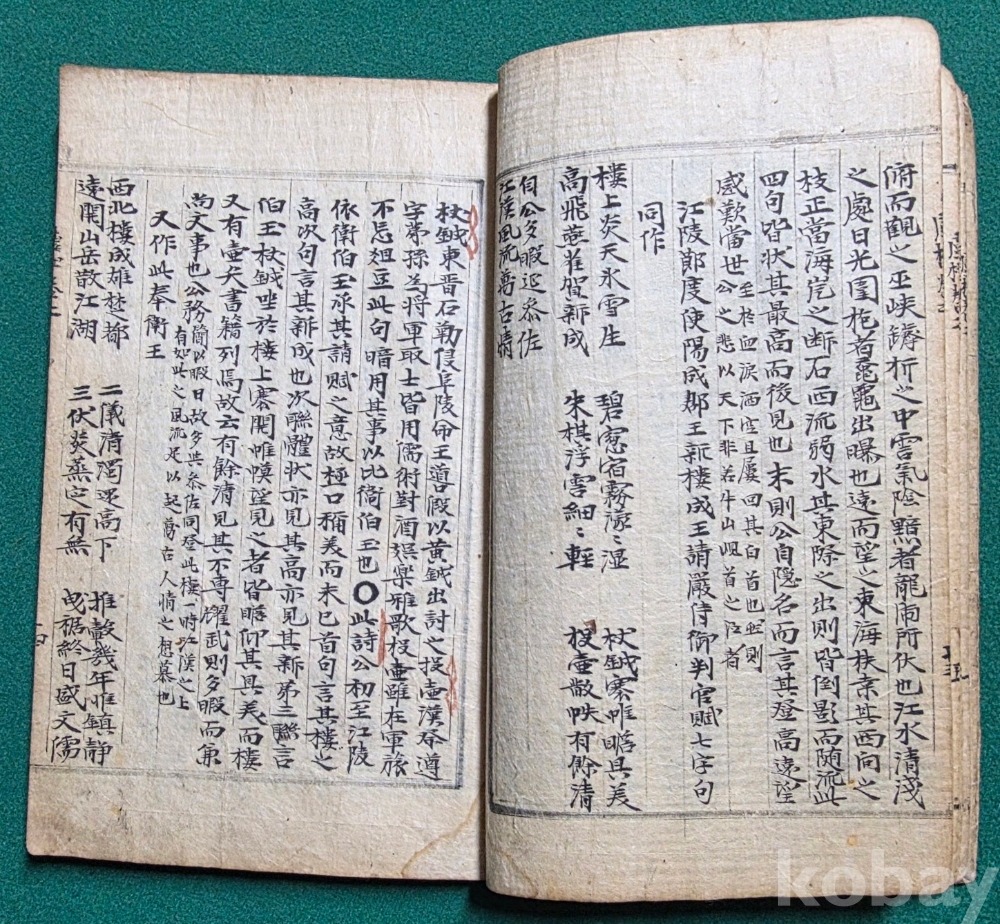 俯而觀之巫峽罅折之中雲氣陰黯者龍鬧所伏也江水清淺
之處日光圍抱者鼋鼉出曝也遠而望之東海扶桑其西向之
枝正當海岸之断石西流弱水其東際之出則皆倒影而随流此
四句皆状其最高而後見也末則公自隐名而言其登高遠望
至於血淚洒空且屢回其白首也然則
感歎當世公之悲以天下非若牛山峴首之江者
江陵節度使陽成郡王新樓成王請嚴侍御判官賦七字句
同作
樓上炎天氷雪生 碧窓宿霧濛濕 杖鉞褰帷瞻具美
高飛燕雀賀新成 朱棋浮雲細〻輕 投壷散帙有餘清
自公多暇延叅佐
江漢風流萬古情
杖鉞東晋石勒侵阜陵命王導假以黄鉞出討之投壷漢祭遵
字苐孫為將軍取士皆用儒術對酒娯樂雅歌投壷雖在軍旅
不忘俎豆此句暗用其事以比衛伯玉也○此詩公初至江陵
依衛伯玉承其請賦之意故極口稱美而来已首句言其樓之
高次句言其新成也次聯體状亦見其高亦見其新苐三聯言
伯玉杖鉞坐於樓上褰開帷幙望見之者皆瞻仰其具美而樓
又有壷矢書籍列焉故云有餘清見其不專耀武則多暇而兼
尚文事也公務簡以暇日故多與叅佐同登此樓一時江漢之上
有如此之風流足以起萬古人情之想慕也
又作此奉衛王
西北樓成雄楚都 二儀清濁還高下 推轂幾年惟鎮静
遠開山岳散江湖 三伏炎蒸定有無 曳裾終日盛文儒